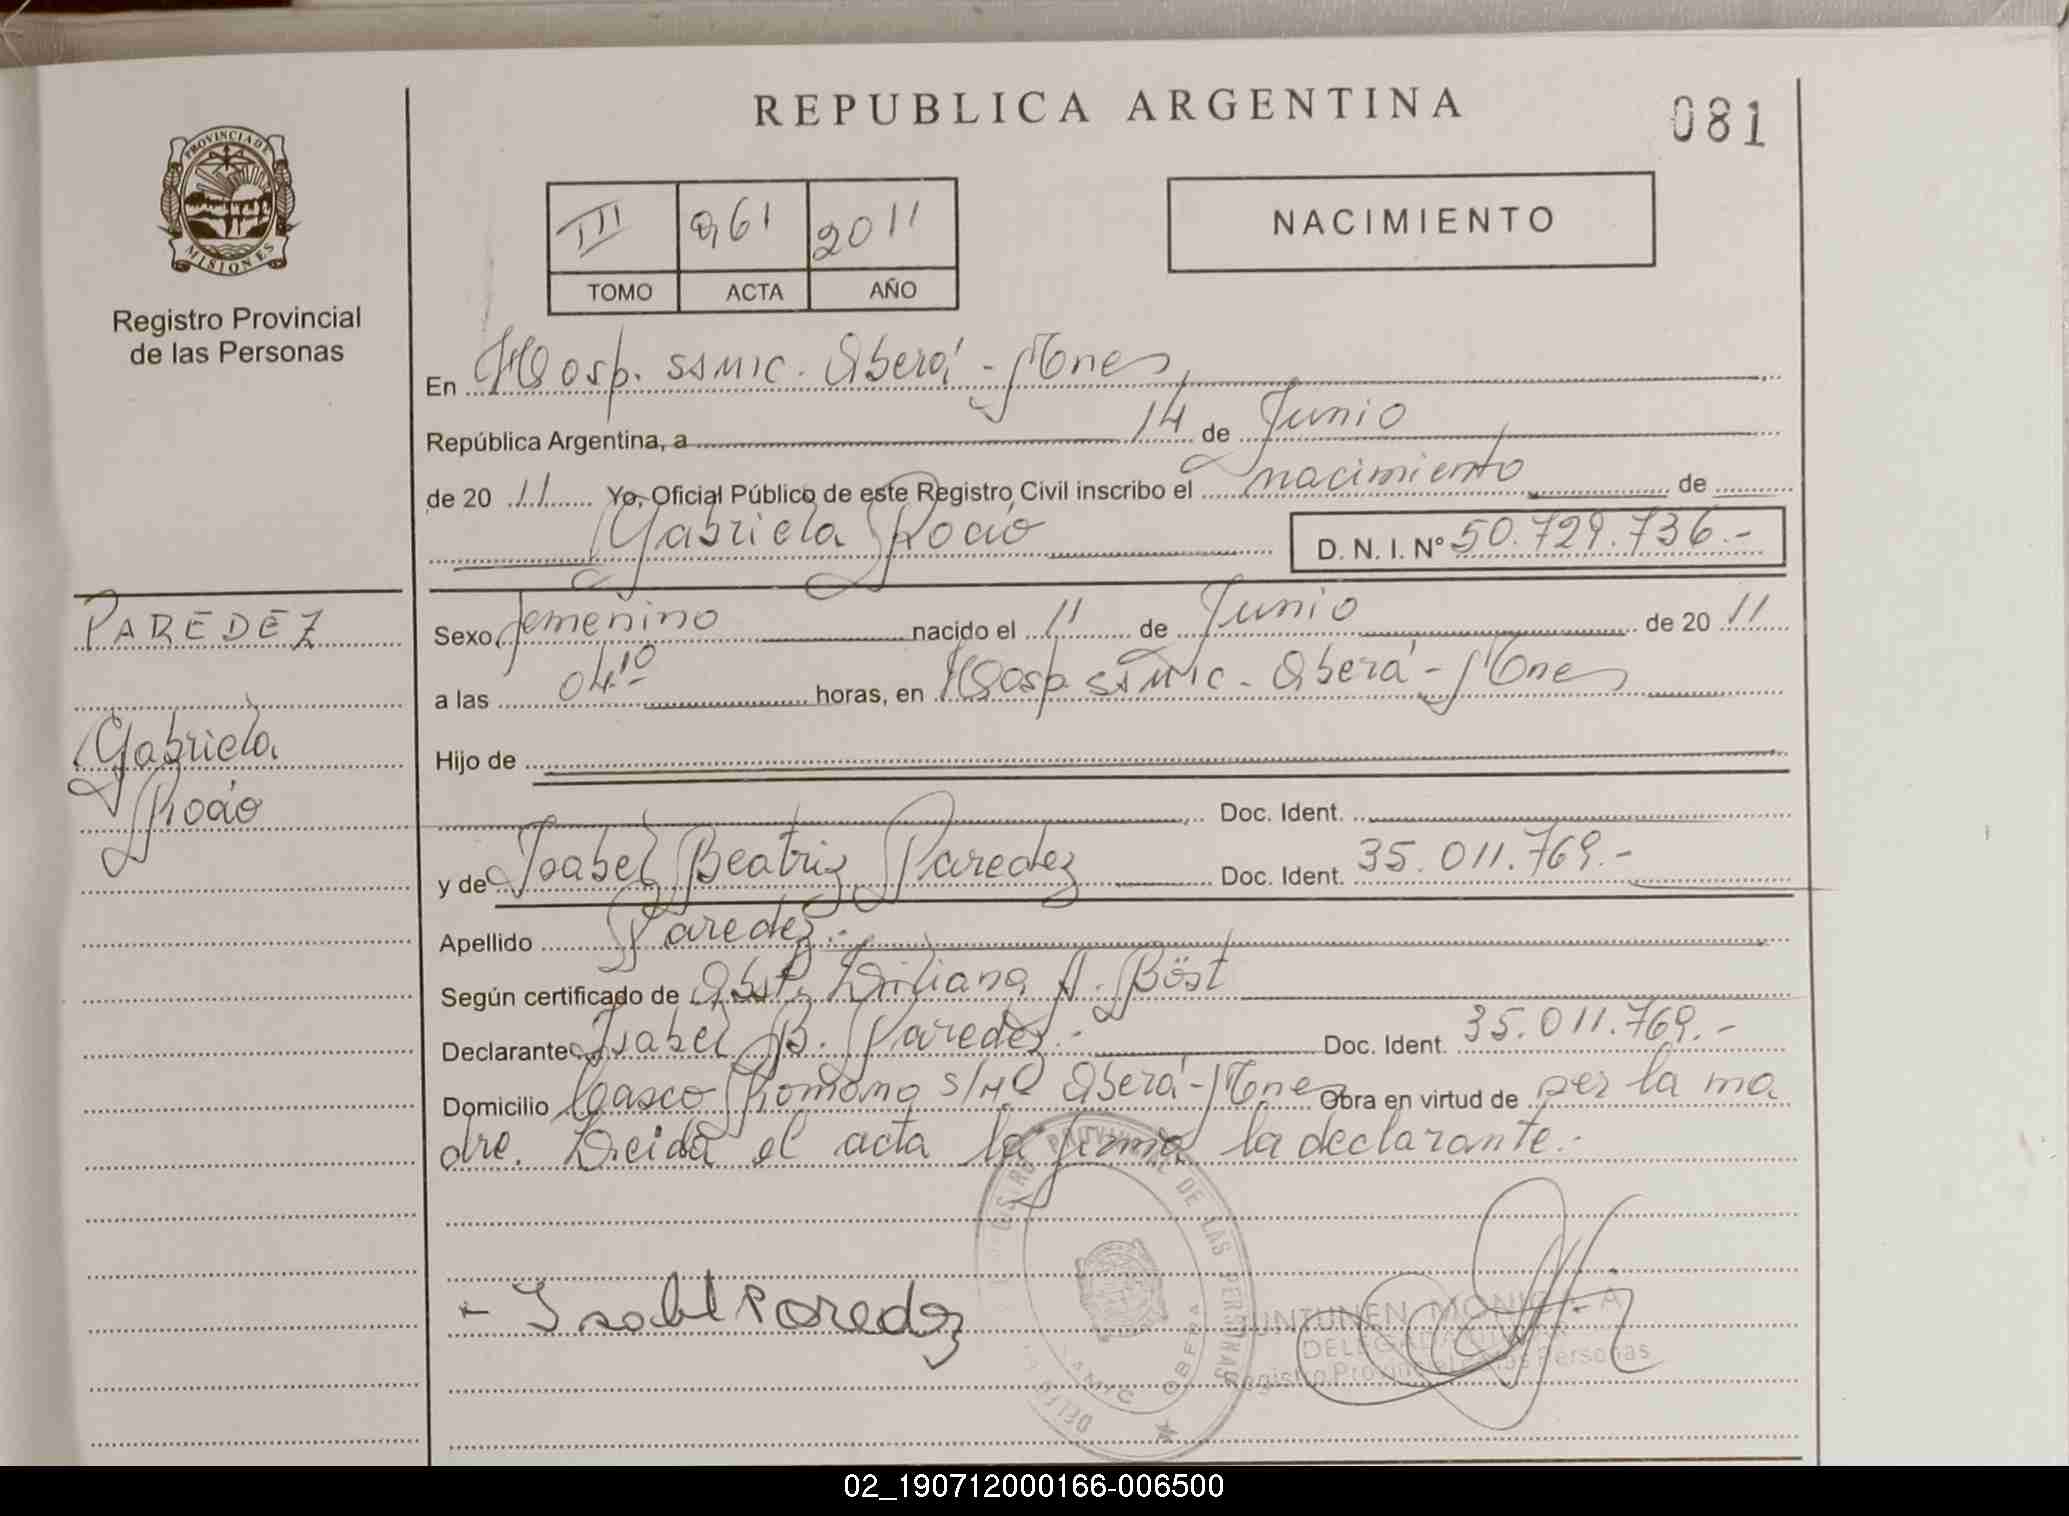 REPUBLICA ARGENTINA
081
PROVINCIA DE MISIONES
Registro Provincial
de las Personas
III 261 2011
TOMO ACTA AÑO
NACIMIENTO
En Hosp. SAMIC. Oberá - Mnes
República Argentina, a 14 de Junio
de 20 11 Yo, Oficial Público de este Registro Civil inscribo el nacimiento de
Gabriela Rocío
D. N. I. Nº 50.729.736.-
PAREDEZ
Gabriela
Rocío
Sexo femenino nacido el 11 de Junio de 20 11
a las 04.10 horas, en Hosp SAMIC - Oberá - Mnes
Hijo de
Doc. Ident.
y de Isabel Beatriz Paredez Doc. Ident. 35.011.769.-
Apellido Paredez.-
Según certificado de Obst. Liliana A. Böst
Declarante Isabel B. Paredez.- Doc. Ident. 35.011.769.-
Domicilio Casco Romano s/nº Oberá - Mnes Obra en virtud de ser la ma
dre. Leída el acta la firma la declarante.-
- Isabel Paredez
REG. PROVINCIAL DE LAS PERSONAS
SAMIC OBERA
DELEGADA
Registro Provincial de las Personas
02_190712000166-006500